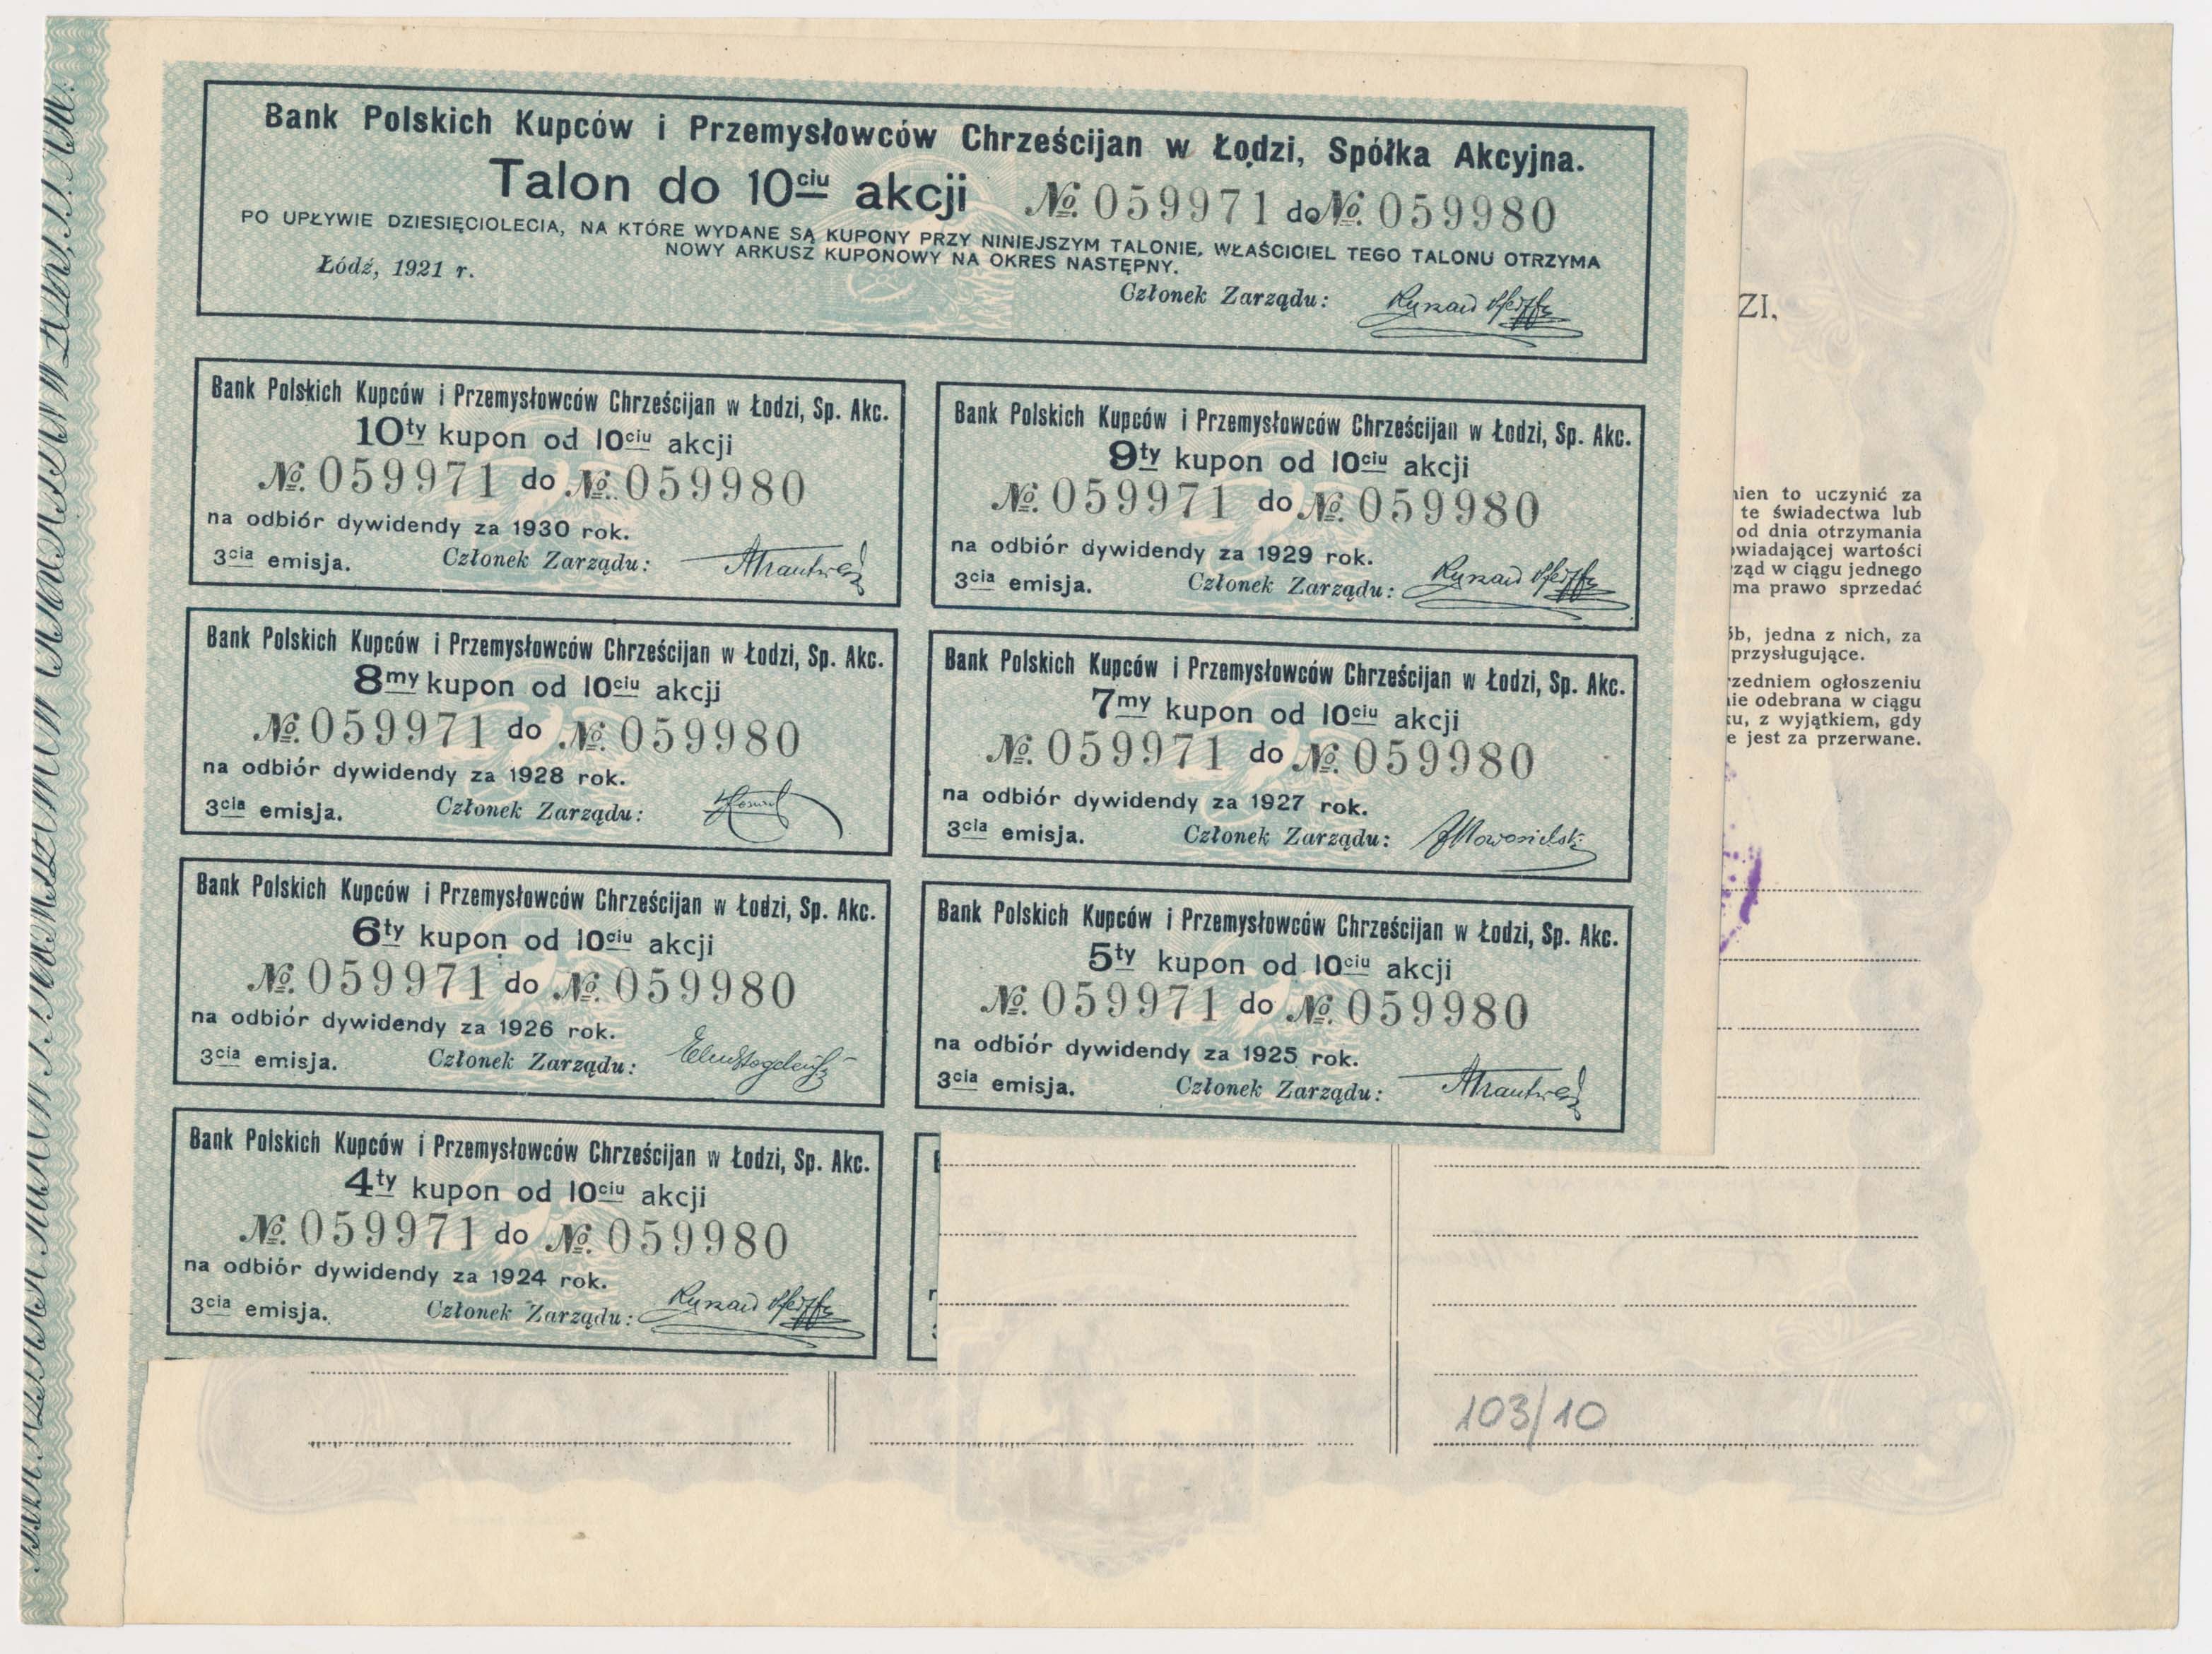 Bank Polskich Kupców i Przemysłowców Chrześcijan w Łodzi, Spółka Akcyjna.
Talon do 10ciu akcji № 059971 do № 059980
PO UPŁYWIE DZIESIĘCIOLECIA, NA KTÓRE WYDANE SĄ KUPONY PRZY NINIEJSZYM TALONIE, WŁAŚCICIEL TEGO TALONU OTRZYMA
NOWY ARKUSZ KUPONOWY NA OKRES NASTĘPNY.
Łódź, 1921 r.
Członek Zarządu:
Bank Polskich Kupców i Przemysłowców Chrześcijan w Łodzi, Sp. Akc.
10ty kupon od 10ciu akcji
№ 059971 do № 059980
na odbiór dywidendy za 1930 rok.
3cia emisja. Członek Zarządu:
Bank Polskich Kupców i Przemysłowców Chrześcijan w Łodzi, Sp. Akc.
9ty kupon od 10ciu akcji
№ 059971 do № 059980
na odbiór dywidendy za 1929 rok.
3cia emisja. Członek Zarządu:
Bank Polskich Kupców i Przemysłowców Chrześcijan w Łodzi, Sp. Akc.
8my kupon od 10ciu akcji
№ 059971 do № 059980
na odbiór dywidendy za 1928 rok.
3cia emisja. Członek Zarządu:
Bank Polskich Kupców i Przemysłowców Chrześcijan w Łodzi, Sp. Akc.
7my kupon od 10ciu akcji
№ 059971 do № 059980
na odbiór dywidendy za 1927 rok.
3cia emisja. Członek Zarządu:
Bank Polskich Kupców i Przemysłowców Chrześcijan w Łodzi, Sp. Akc.
6ty kupon od 10ciu akcji
№ 059971 do № 059980
na odbiór dywidendy za 1926 rok.
3cia emisja. Członek Zarządu:
Bank Polskich Kupców i Przemysłowców Chrześcijan w Łodzi, Sp. Akc.
5ty kupon od 10ciu akcji
№ 059971 do № 059980
na odbiór dywidendy za 1925 rok.
3cia emisja. Członek Zarządu:
Bank Polskich Kupców i Przemysłowców Chrześcijan w Łodzi, Sp. Akc.
4ty kupon od 10ciu akcji
№ 059971 do № 059980
na odbiór dywidendy za 1924 rok.
3cia emisja. Członek Zarządu:
ZI.
ien to uczynić za
te świadectwa lub
od dnia otrzymania
wiadającej wartości
rząd w ciągu jednego
ma prawo sprzedać
ób, jedna z nich, za
przysługujące.
zedniem ogłoszeniu
nie odebrana w ciągu
ku, z wyjątkiem, gdy
e jest za przerwane.
103/10